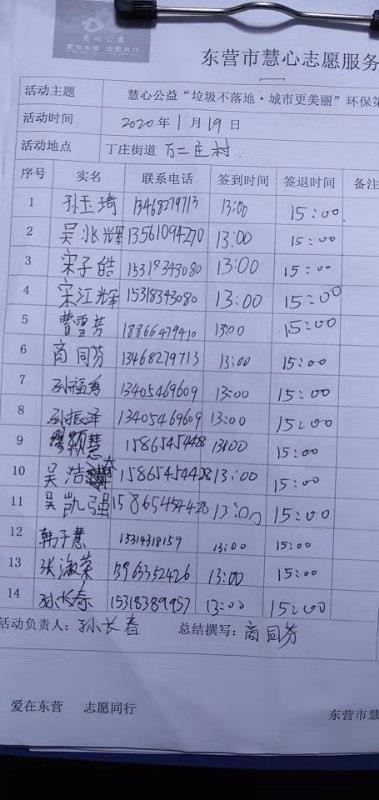 慧心公益
爱在东营 志愿同行
东营市慧心志愿服务
活动主题 慧心公益“垃圾不落地·城市更美丽”环保第
活动时间 2020年1月19日
活动地点 丁庄街道 万二庄村
序号 实名 联系电话 签到时间 签退时间 备注
1 孙玉琦 13468279713 13:00 15:00
2 吴兆辉 13561094270 13:00 15:00
3 宋子皓 15318343080 13:00 15:00
4 宋江辉 15318343080 13:00 15:00
5 曹雪芳 18866479410 13:00 15:00
6 商同芬 13468279713 13:00 15:00
7 孙福秀 13405469609 13:00 15:00
8 孙振泽 13405469609 13:00 15:00
9 颖慧 15865454428 13:00 15:00
10 吴浩 15865454428 13:00 15:00
11 吴凯强 15865454428 13:00 15:00
12 韩子慧 15314318159 13:00 15:00
13 张淑荣 13:00 15:00
14 孙长春 15318389957 13:00 15:00
活动负责人：孙长春 总结撰写：商同芬
爱在东营 志愿同行 东营市慧